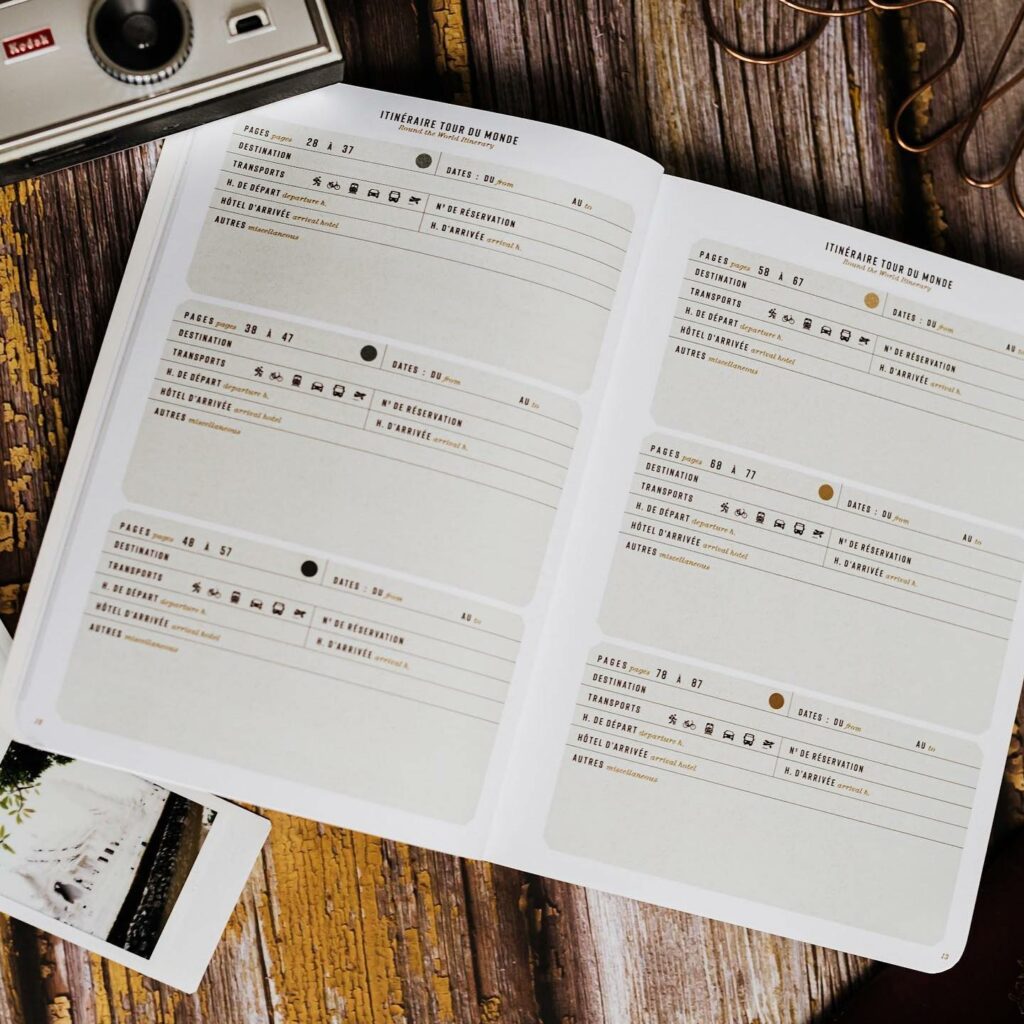 Kodak
ITINÉRAIRE TOUR DU MONDE
Round the World Itinerary
PAGES pages 28 À 37
DATES : DU from AU to
DESTINATION
TRANSPORTS
N° DE RÉSERVATION
H. DE DÉPART departure h.
H. D'ARRIVÉE arrival h.
HÔTEL D'ARRIVÉE arrival hotel
AUTRES miscellaneous
PAGES pages 38 À 47
DATES : DU from AU to
DESTINATION
TRANSPORTS
N° DE RÉSERVATION
H. DE DÉPART departure h.
H. D'ARRIVÉE arrival h.
HÔTEL D'ARRIVÉE arrival hotel
AUTRES miscellaneous
PAGES pages 48 À 57
DATES : DU from AU to
DESTINATION
TRANSPORTS
N° DE RÉSERVATION
H. DE DÉPART departure h.
H. D'ARRIVÉE arrival h.
HÔTEL D'ARRIVÉE arrival hotel
AUTRES miscellaneous
ITINÉRAIRE TOUR DU MONDE
Round the World Itinerary
PAGES pages 58 À 67
DATES : DU from AU to
DESTINATION
TRANSPORTS
N° DE RÉSERVATION
H. DE DÉPART departure h.
H. D'ARRIVÉE arrival h.
HÔTEL D'ARRIVÉE arrival hotel
AUTRES miscellaneous
PAGES pages 68 À 77
DATES : DU from AU to
DESTINATION
TRANSPORTS
N° DE RÉSERVATION
H. DE DÉPART departure h.
H. D'ARRIVÉE arrival h.
HÔTEL D'ARRIVÉE arrival hotel
AUTRES miscellaneous
PAGES pages 78 À 87
DATES : DU from AU to
DESTINATION
TRANSPORTS
N° DE RÉSERVATION
H. DE DÉPART departure h.
H. D'ARRIVÉE arrival h.
HÔTEL D'ARRIVÉE arrival hotel
AUTRES miscellaneous
13